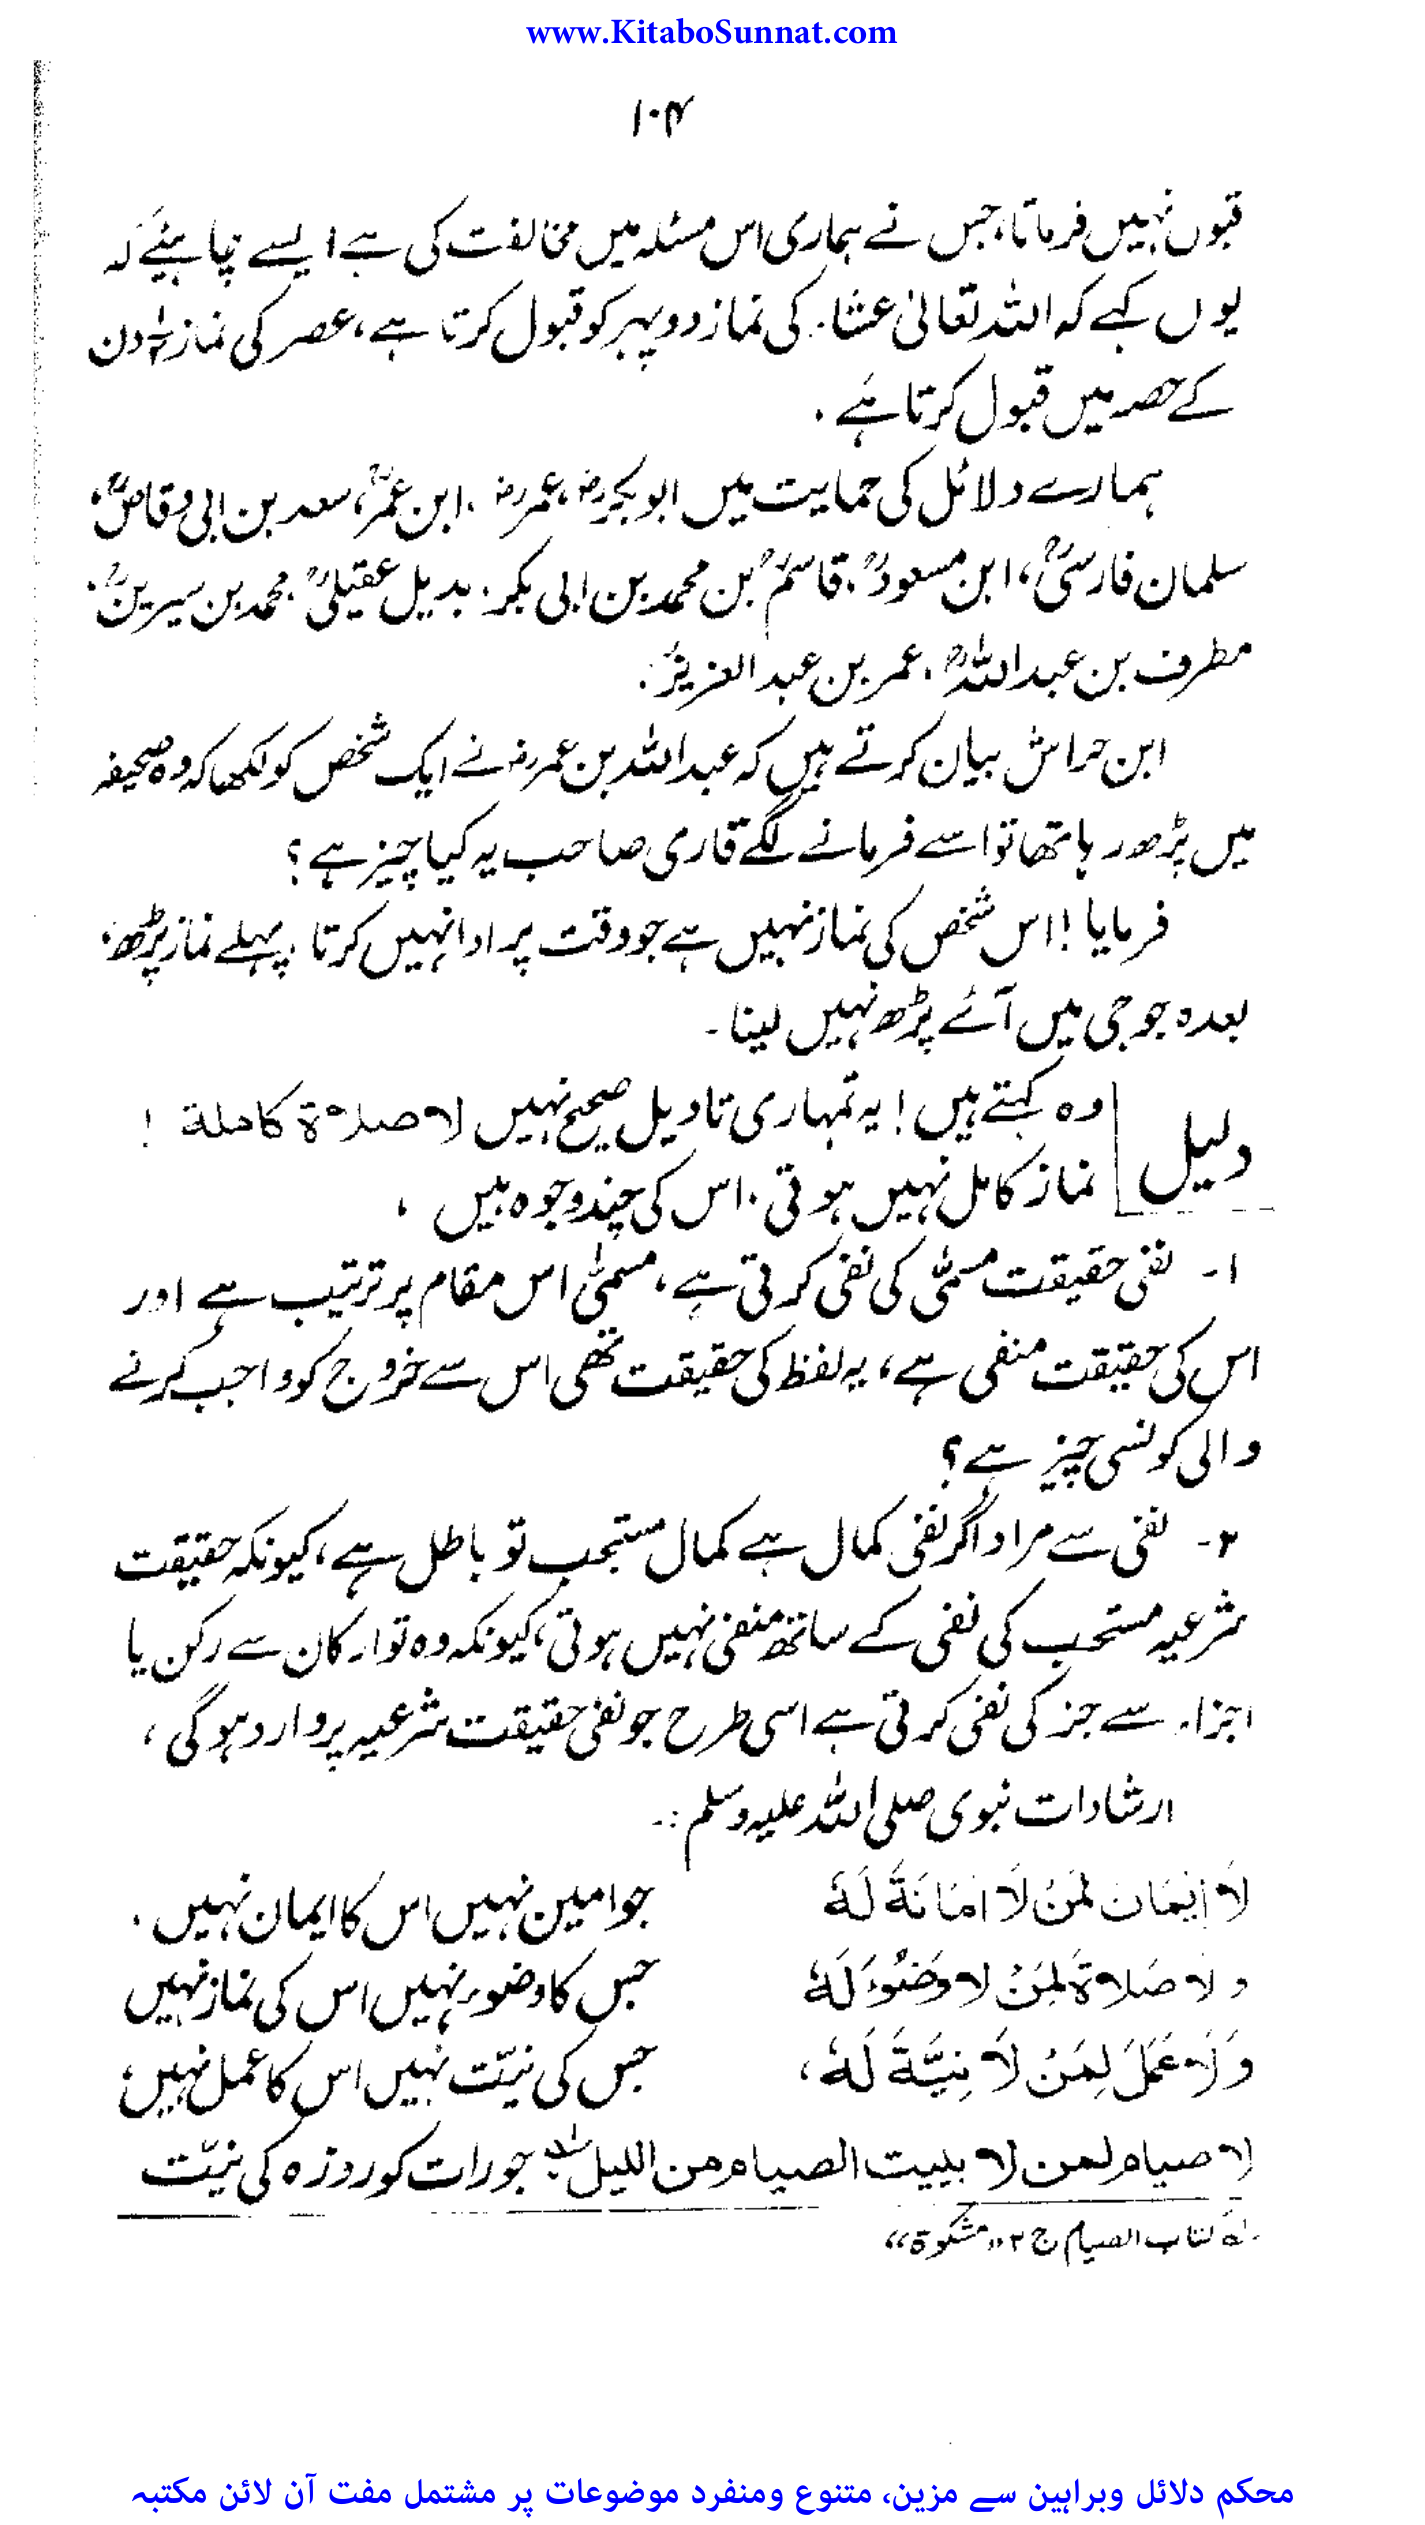 www.KitaboSunnat.com
۱۰۴
قبول نہیں فرماتا، جس نے ہماری اس مسئلہ میں مخالفت کی ہے اسے چاہئیے کہ
یوں کہے کہ اللہ تعالیٰ عشاء کی نماز دوپہر کو قبول کرتا ہے، عصر کی نماز دن
کے حصہ میں قبول کرتا ہے .
ہمارے دلائل کی حمایت میں ابوبکرؓ، عمرؓ، ابن عمرؓ، سعد بن ابی وقاصؓ،
سلمان فارسیؓ، ابن مسعودؓ، قاسمؒ بن محمد بن ابی بکر، بدیل عقیلیؒ، محمد بن سیرینؒ،
مطرف بن عبد اللہؒ، عمر بن عبد العزیزؒ .
ابن حراش بیان کرتے ہیں کہ عبد اللہ بن عمرؓ نے ایک شخص کو لکھا کہ وہ صحیفہ
میں پڑھ رہا تھا تو اسے فرمانے لگے قاری صاحب یہ کیا چیز ہے ؟
فرمایا ! اس شخص کی نماز نہیں ہے جو وقت پر ادا نہیں کرتا، پہلے نماز پڑھ،
بعدہ جو جی میں آئے پڑھ نہیں لینا ۔
دلیل وہ کہتے ہیں ! یہ تمہاری تاویل صحیح نہیں لا صلاة كاملة !
نماز کامل نہیں ہوتی . اس کی چند وجوہ ہیں ،
۱۔ نفی حقیقت مسمّٰی کی نفی کرتی ہے، مسمّٰی اس مقام پر ترتیب ہے اور
اس کی حقیقت منفی ہے، یہ لفظ کی حقیقت تھی اس سے خروج کو واجب کرنے
والی کونسی چیز ہے ؟
۲۔ نفی سے مراد اگر نفی کمال ہے کمال مستحب تو باطل ہے، کیونکہ حقیقت
شرعیہ مستحب کی نفی کے ساتھ منفی نہیں ہوتی، کیونکہ وہ تو ارکان سے رکن یا
اجزاء سے جز کی نفی کرتی ہے اسی طرح جو نفی حقیقت شرعیہ پر وارد ہوگی ،
ارشادات نبوی صلی اللہ علیہ وسلم :۔
لَا اِيْمَانَ لِمَنْ لَا اَمَانَةَ لَهٗ جو امین نہیں اس کا ایمان نہیں .
وَلَا صَلَاةَ لِمَنْ لَا وَضُوْءَ لَهٗ جس کا وضوء نہیں اس کی نماز نہیں
وَلَا عَمَلَ لِمَنْ لَا نِيَّةَ لَهٗ، جس کی نیّت نہیں اس کا عمل نہیں،
لا صيام لمن لا يبيت الصيام من الليل لہ جو رات کو روزہ کی نیّت
لہ کتاب الصیام ج ۲ "مشکوٰۃ"
محکم دلائل وبراہین سے مزین، متنوع ومنفرد موضوعات پر مشتمل مفت آن لائن مکتبہ